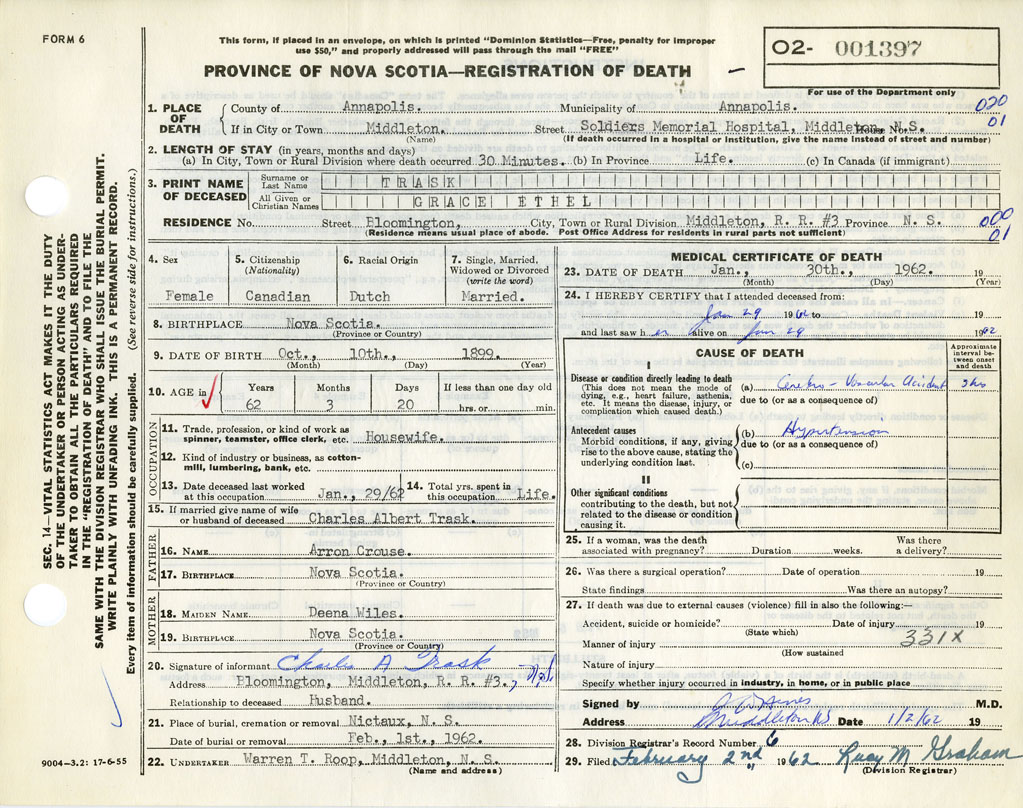 FORM 6
This form, if placed in an envelope, on which is printed "Dominion Statistics—Free, penalty for improper
use $50," and properly addressed will pass through the mail "FREE"
PROVINCE OF NOVA SCOTIA—REGISTRATION OF DEATH
02- 001397
For use of the Department only
SEC. 14—VITAL STATISTICS ACT MAKES IT THE DUTY
OF THE UNDERTAKER OR PERSON ACTING AS UNDER-
TAKER TO OBTAIN ALL THE PARTICULARS REQUIRED
IN THE "REGISTRATION OF DEATH" AND TO FILE THE
SAME WITH THE DIVISION REGISTRAR WHO SHALL ISSUE THE BURIAL PERMIT.
WRITE PLAINLY WITH UNFADING INK. THIS IS A PERMANENT RECORD.
Every item of information should be carefully supplied. (See reverse side for instructions.)
1. PLACE OF DEATH
County of Annapolis. Municipality of Annapolis. 020
If in City or Town Middleton. Street Soldiers Memorial Hospital, Middleton, N.S. House No. 01
(Name) (If death occurred in a hospital or institution, give the name instead of street and number)
2. LENGTH OF STAY (in years, months and days)
(a) In City, Town or Rural Division where death occurred 30 Minutes. (b) In Province Life. (c) In Canada (if immigrant)
3. PRINT NAME OF DECEASED
Surname or Last Name TRASK
All Given or Christian Names GRACE ETHEL
RESIDENCE No. Street Bloomington, City, Town or Rural Division Middleton, R. R. #3 Province N. S. 000
(Residence means usual place of abode. Post Office Address for residents in rural parts not sufficient) 01
4. Sex
Female
5. Citizenship
(Nationality)
Canadian
6. Racial Origin
Dutch
7. Single, Married,
Widowed or Divorced
(write the word)
Married.
8. BIRTHPLACE Nova Scotia.
(Province or Country)
9. DATE OF BIRTH Oct., 10th., 1899.
(Month) (Day) (Year)
10. AGE in
Years Months Days If less than one day old
62 3 20 hrs. or min.
OCCUPATION
11. Trade, profession, or kind of work as
spinner, teamster, office clerk, etc. Housewife.
12. Kind of industry or business, as cotton-
mill, lumbering, bank, etc.
13. Date deceased last worked
at this occupation Jan., 29/62
14. Total yrs. spent in
this occupation Life.
15. If married give name of wife
or husband of deceased Charles Albert Trask.
FATHER
16. NAME Arron Crouse.
17. BIRTHPLACE Nova Scotia.
(Province or Country)
MOTHER
18. MAIDEN NAME Deena Wiles.
19. BIRTHPLACE Nova Scotia.
(Province or Country)
20. Signature of informant Charles A Trask
Address Bloomington, Middleton, R. R. #3.
Relationship to deceased Husband.
21. Place of burial, cremation or removal Nictaux, N. S.
Date of burial or removal Feb., 1st., 1962.
22. UNDERTAKER Warren T. Roop, Middleton, N. S.
(Name and address)
9004-3.2: 17-6-55
MEDICAL CERTIFICATE OF DEATH
23. DATE OF DEATH Jan., 30th., 1962. 19
(Month) (Day) (Year)
24. I HEREBY CERTIFY that I attended deceased from:
Jan 29 1962 to 19
and last saw her alive on Jan 29 1962
CAUSE OF DEATH
Approximate
interval be-
tween onset
and death
I
Disease or condition directly leading to death
(This does not mean the mode of
dying, e.g., heart failure, asthenia,
etc. It means the disease, injury, or
complication which caused death.)
(a) Cerebro-Vascular Accident
due to (or as a consequence of)
Antecedent causes
Morbid conditions, if any, giving
rise to the above cause, stating the
underlying condition last.
(b) Hypertension
due to (or as a consequence of)
(c)
II
Other significant conditions
contributing to the death, but not
related to the disease or condition
causing it.
25. If a woman, was the death
associated with pregnancy? Duration weeks. Was there
a delivery?
26. Was there a surgical operation? Date of operation 19
State findings Was there an autopsy?
27. If death was due to external causes (violence) fill in also the following:—
Accident, suicide or homicide? Date of injury 19
(State which)
331X
Manner of injury
(How sustained
Nature of injury
Specify whether injury occurred in industry, in home, or in public place
Signed by M.D.
Address Middleton NS Date 1/2/62 19
28. Division Registrar's Record Number 6
29. Filed February 2nd 1962 Lucy M Graham
(Division Registrar)